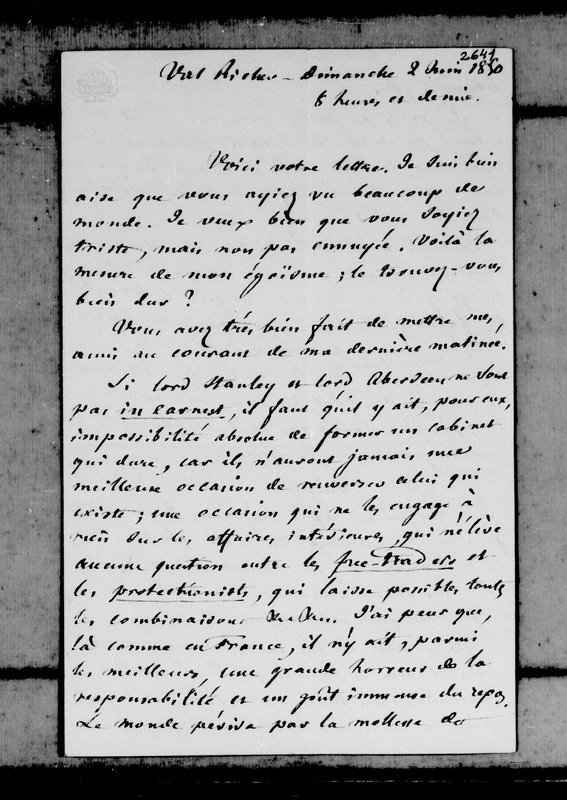 2641
Val Richer - Dimanche 2 Juin 1850
8 heures et demie.
Voici votre lettre. Je suis bien
aise que vous ayiez vu beaucoup de
monde. Je veux bien que vous soyiez
triste, mais non pas ennuyée. Voilà la
mesure de mon égoïsme ; le trouvez-vous
bien dur ?
Vous avez très bien fait de mettre mes
amis au courant de ma dernière matinée.
Si lord Stanley et lord Aberdeen ne sont
pas in earnest, il faut qu'il y ait, pour eux,
impossibilité absolue de former un cabinet
qui dure, car ils n'auront jamais une
meilleure occasion de renverser celui qui
existe ; une occasion qui ne les engage à
rien sur les affaires intérieures, qui n'élève
aucune question entre les free-traders et
les protectionists, qui laisse possibles toutes
les combinaisons &c &c. J'ai peur que,
là comme en France, il n'y ait, parmi
les meilleurs, une grande horreur de la
responsabilité et un goût immense du repos.
Le monde périra par la mollesse de